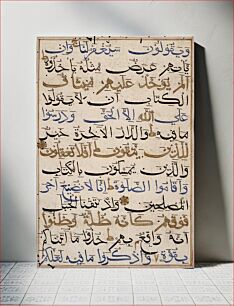 ويقولون سيغفر لنا وان
ياتهم عرض مثله ياخذوه
الم يؤخذ عليهم ميثاق
الكتاب ان لا يقولوا
على الله الا الحق ودرسوا
ما فيه والدار الاخرة خير
للذين يتقون افلا تعقلون
والذين يمسكون بالكتاب
واقاموا الصلوة انا لا نضيع اجر
المصلحين واذ نتقنا الجبل
فوقهم كانه ظلة وظنوا
انه واقع بهم خذوا ما اتيناكم
بقوة واذكروا ما فيه لعلكم